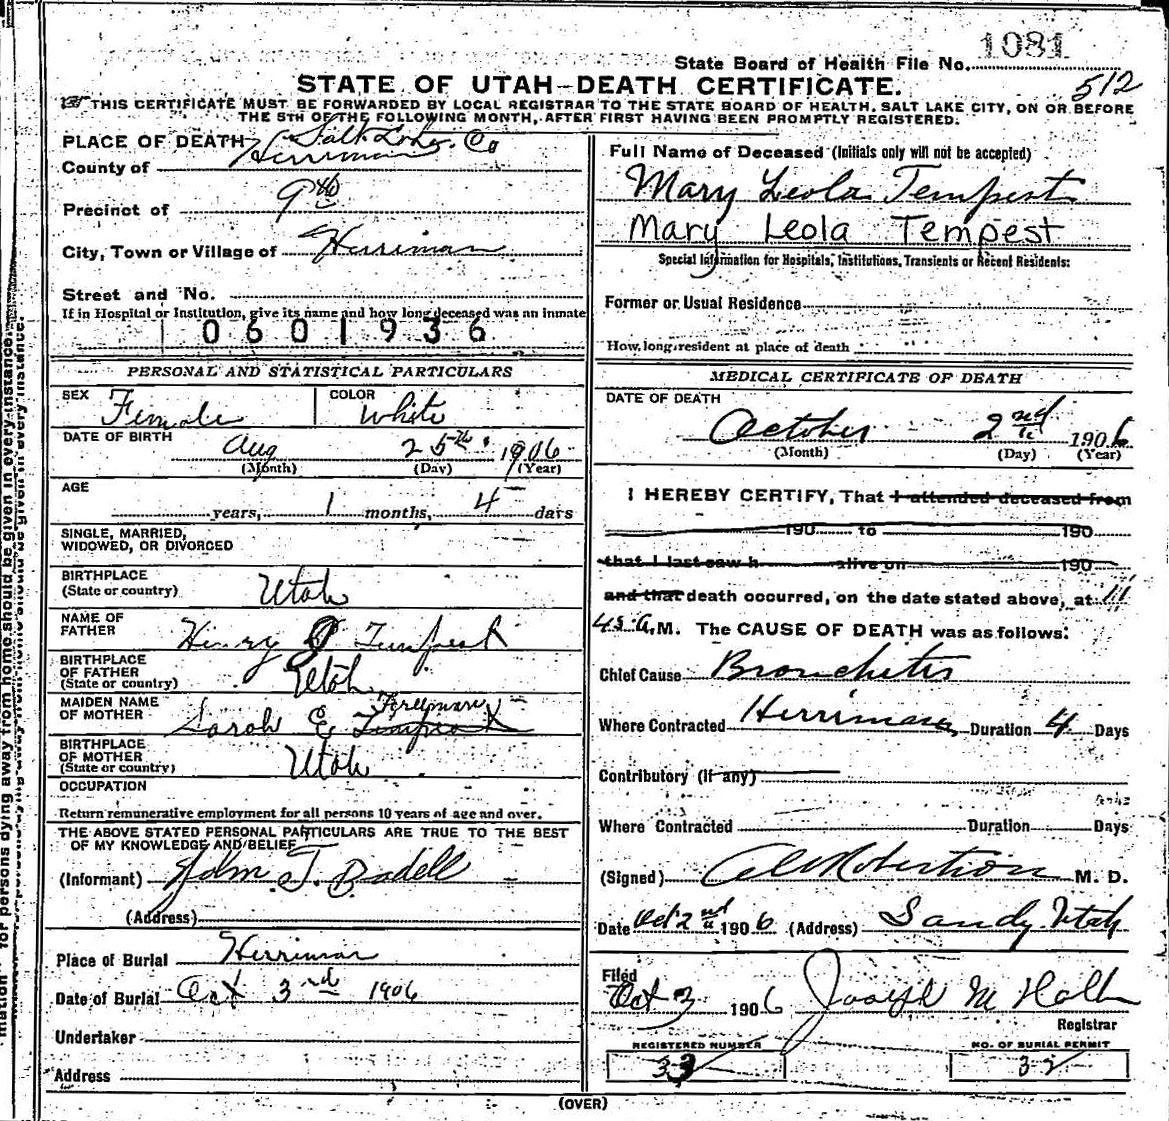 1081
State Board of Health File No.
STATE OF UTAH-DEATH CERTIFICATE.
512
THIS CERTIFICATE MUST BE FORWARDED BY LOCAL REGISTRAR TO THE STATE BOARD OF HEALTH, SALT LAKE CITY, ON OR BEFORE
THE 5TH OF THE FOLLOWING MONTH, AFTER FIRST HAVING BEEN PROMPTLY REGISTERED.
PLACE OF DEATH Salt Lake Co
County of Herriman
Precinct of 9th
City, Town or Village of Herriman
Street and No.
If in Hospital or Institution, give its name and how long deceased was an inmate
0601936
PERSONAL AND STATISTICAL PARTICULARS
SEX Female COLOR White
DATE OF BIRTH Aug 25th 1906
(Month) (Day) (Year)
AGE
years, 1 months, 4 days
SINGLE, MARRIED,
WIDOWED, OR DIVORCED
BIRTHPLACE
(State or country) Utah
NAME OF
FATHER Henry J Tempest
BIRTHPLACE
OF FATHER
(State or country) Utah
MAIDEN NAME
OF MOTHER Sarah E Tempest
BIRTHPLACE
OF MOTHER
(State or country) Utah
OCCUPATION
Return remunerative employment for all persons 10 years of age and over.
THE ABOVE STATED PERSONAL PARTICULARS ARE TRUE TO THE BEST
OF MY KNOWLEDGE AND BELIEF
(Informant) John T. Bodell
(Address)
Place of Burial Herriman
Date of Burial Oct 3rd 1906
Undertaker
Address
Full Name of Deceased (Initials only will not be accepted)
Mary Leola Tempest
Mary Leola Tempest
Special Information for Hospitals, Institutions, Transients or Recent Residents:
Former or Usual Residence
How long resident at place of death
MEDICAL CERTIFICATE OF DEATH
DATE OF DEATH
October 2nd 1906
(Month) (Day) (Year)
I HEREBY CERTIFY, That I attended deceased from
190 to 190
that I last saw h alive on 190
and that death occurred, on the date stated above, at 11
45 A.M. The CAUSE OF DEATH was as follows:
Chief Cause Bronchitis
Where Contracted Herriman Duration 4 Days
Contributory (If any)
Where Contracted Duration Days
(Signed) Robertson M. D.
Date Oct 2nd 1906 (Address) Sandy Utah
Filed
Oct 3 1906 Joseph M Holt
Registrar
REGISTERED NUMBER NO. OF BURIAL PERMIT
33 32
(OVER)
for persons dying away from home should be given in every instance.